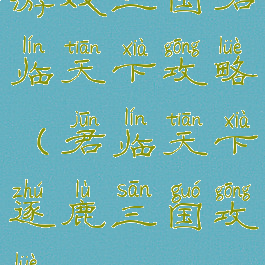 游戏三国君
lín tiān xià gōng lüè
临天下攻略
jūn lín tiān xià
（君临天下
zhú lù sān guó gōng
逐鹿三国攻
lüè